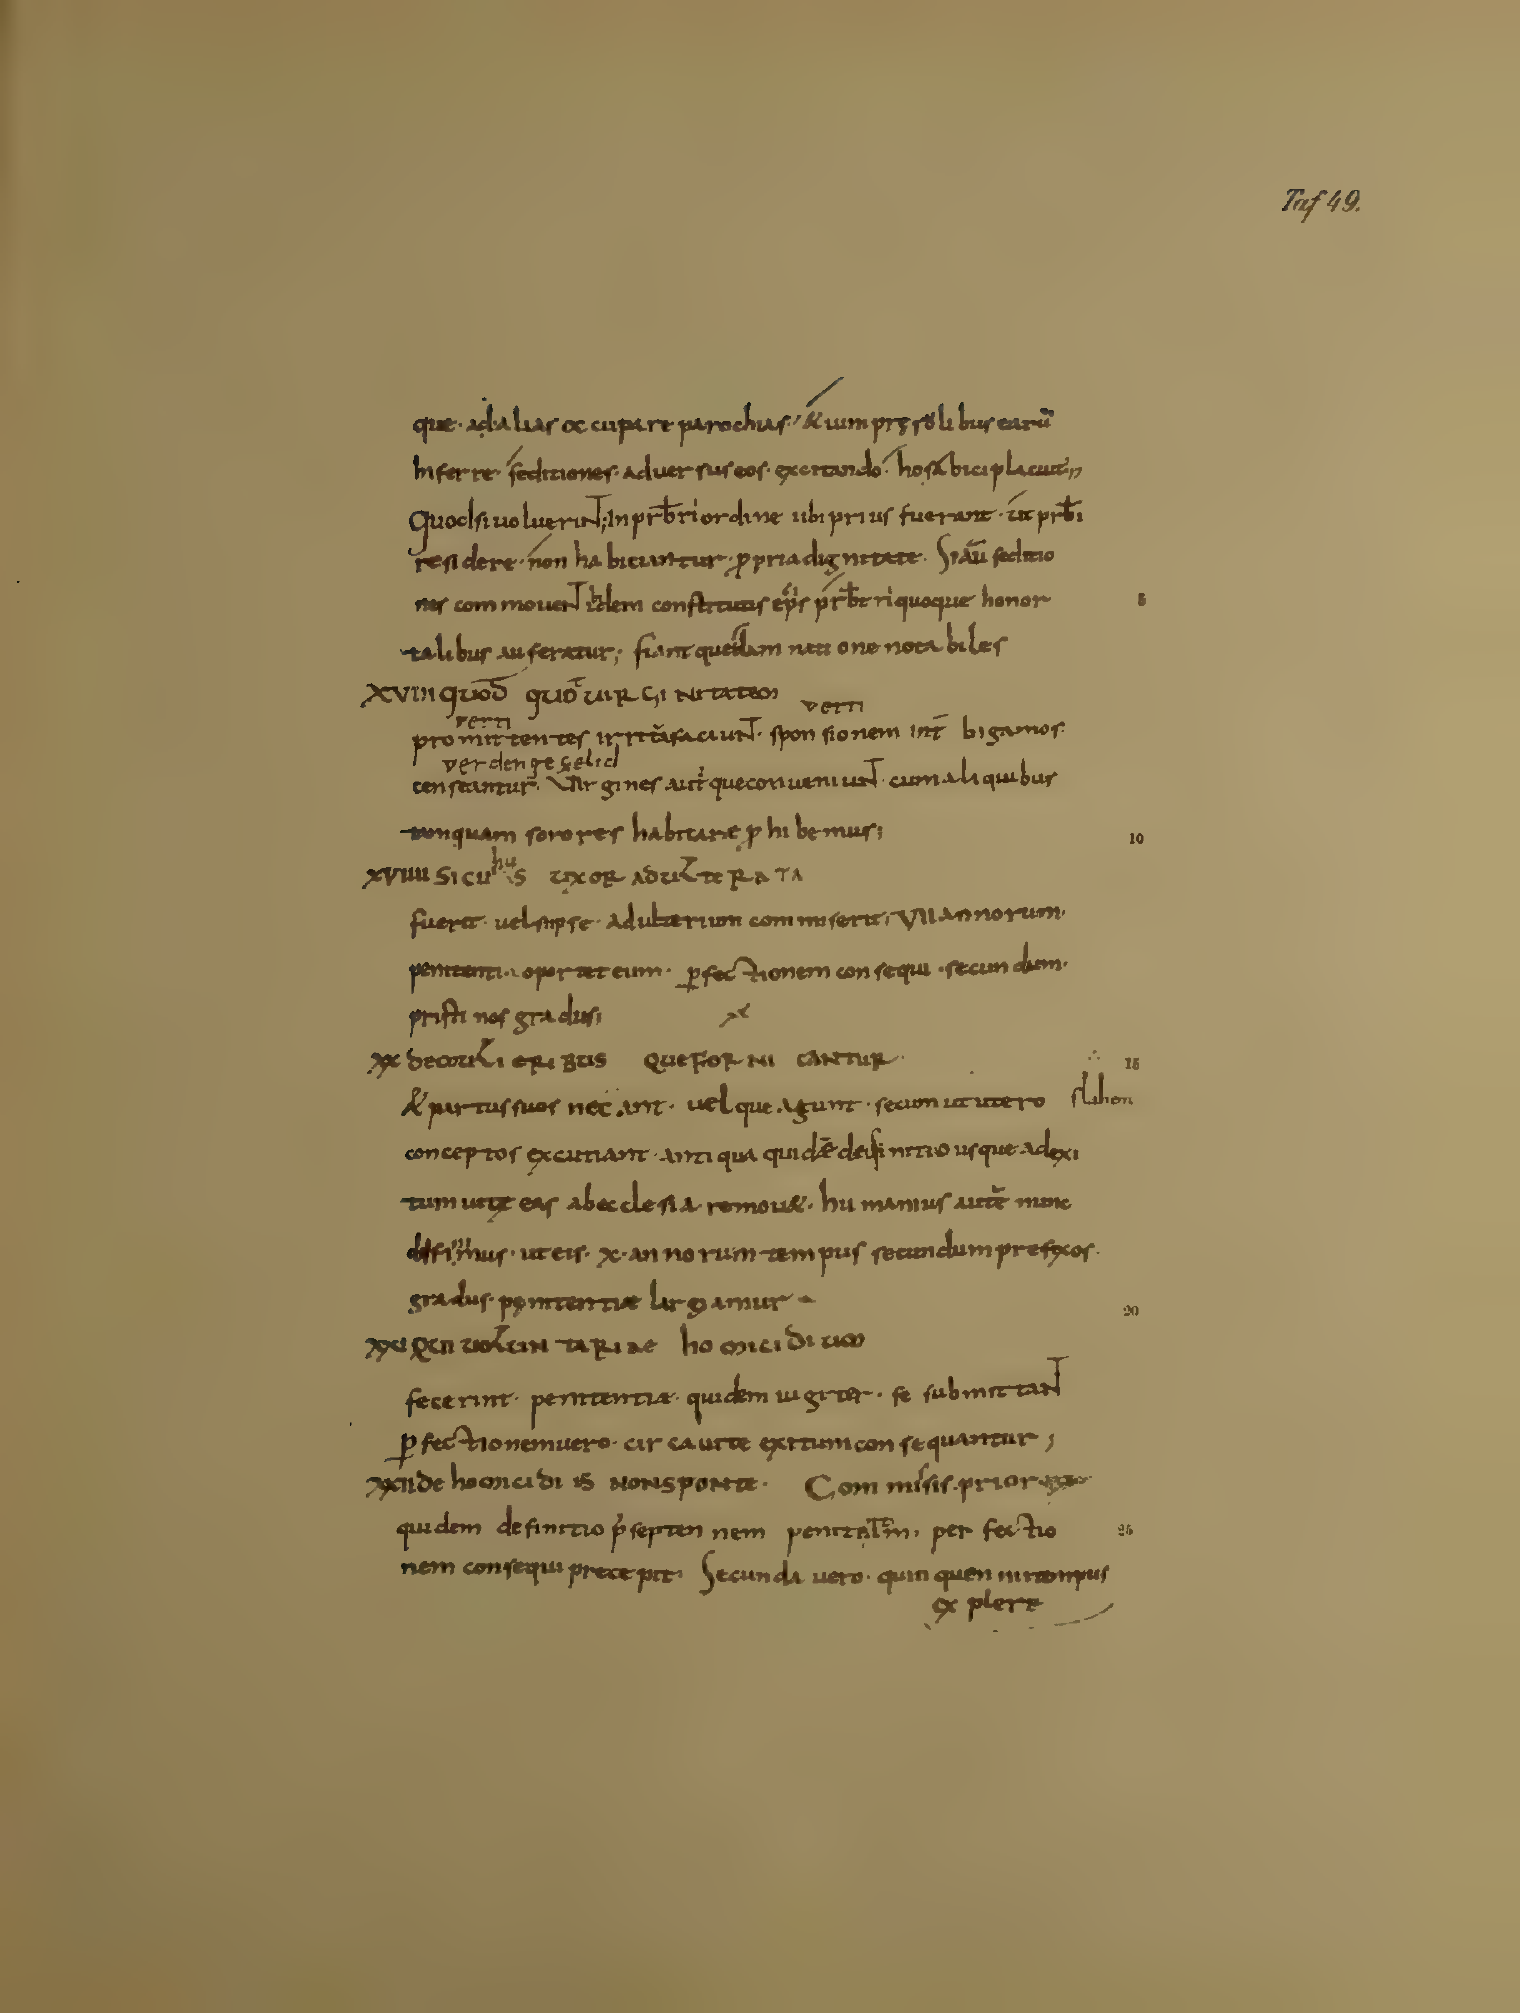 Taf 49.
que· ad alias occupare parochias· & ium pręsolibus earū
Inferre· seditiones· adversus eos· excitando· hos abici placuit
Quod si voluerint; In prb̄ri ordine ubi prius fuerant· ut prb̄i
residere· non habiciantur· ꝓpria dignitate· Si aū seditio
nes commoverint ibidem constitutis ep̄s prb̄tri quoque honor
5
talibus auferatur; fiant quedam nati one notabiles
XVIIII quod quot virginitatem
verti
verti
promittentes irrita faciunt· sponsionem int̄ bigamos·
censeantur· Virgines aut̄ que conveniunt cum aliquibus
tanquam sorores habitare ꝓhibemus;
10
XVIIII Si cuius uxor adulterata
hu
fuerit· vel si ipse· Adulterium commiserit; VII annorum·
penitenti· oportet eum· ꝑfectionem consequi· secundum·
pristinos gradus;
XX De mulieribus que fornicantur·
15
& partus suos necant· vel que Agunt· secum ut utero
conceptos excutiant· antiqua quidē definitio usque ad exi
tum vitę eas ab ecclesia removet· humanius autē nunc
diffinimus· ut eis· x· annorum tempus secundum prefixos·
gradus· penitentiæ largiamur
20
XXI Qui voluntariae homicidium
fecerint· penitentiæ· quidem iugiter· se submittant
ꝑfectionem vero· circa vite exitum consequantur;
XXII de homicidiis non sponte· Commissis· prior
quidem definitio p̄ septennem penitentiam· per fectio
25
nem consequi precepit· Secunda vero· quinquennii tempus
explere